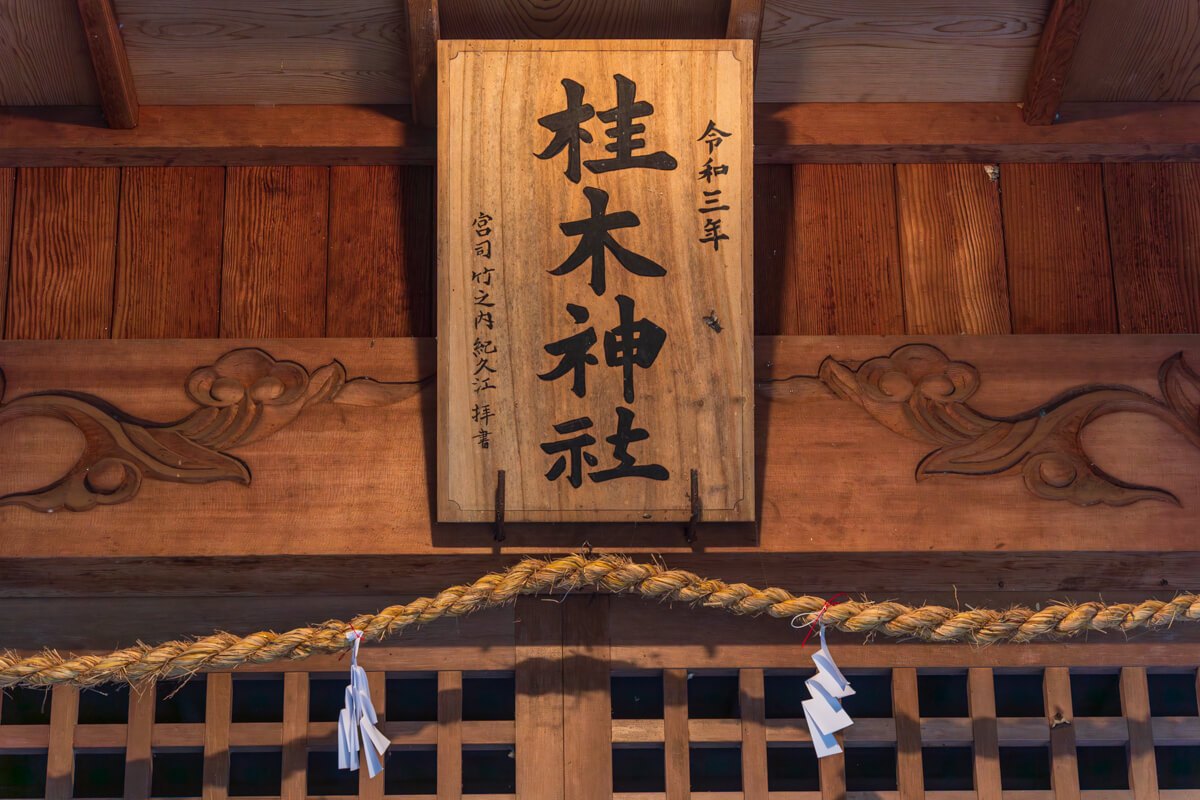 令和三年
桂木神社
宮司 竹之内 紀久江 拝書